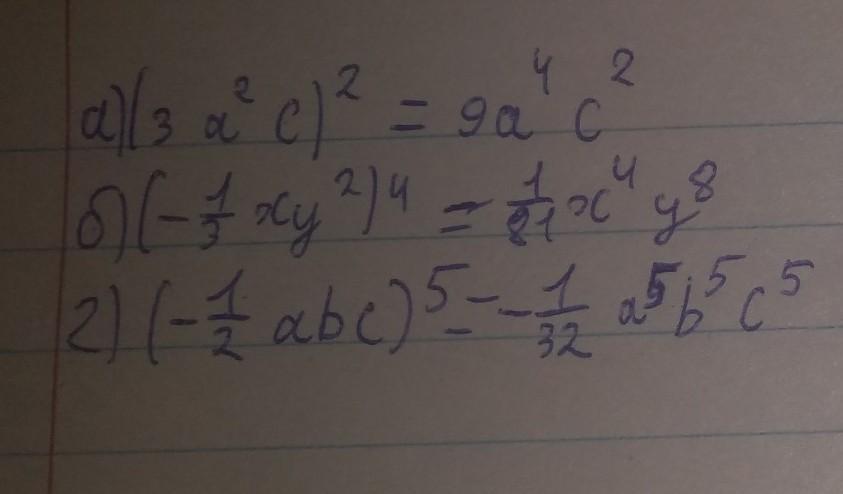 а) (3 a² c)² = 9a⁴ c²
б) (-1/3 xy²)⁴ = 1/81 x⁴ y⁸
г) (-1/2 abc)⁵ = -1/32 a⁵ b⁵ c⁵